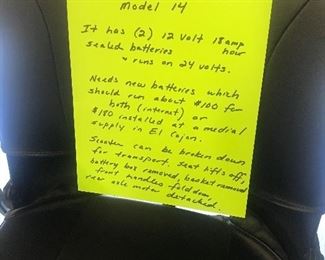 Model 14
It has (2) 12 Volt 18 amp
hour
sealed batteries
& runs on 24 volts.
Needs new batteries which
should run about $100 for
both (internet) or
$180 installed at a medical
supply in El Cajon.
Scooter can be broken down
for transport. Seat lifts off,
battery box removed, basket removed
front handles fold down
rear axle motor detached.